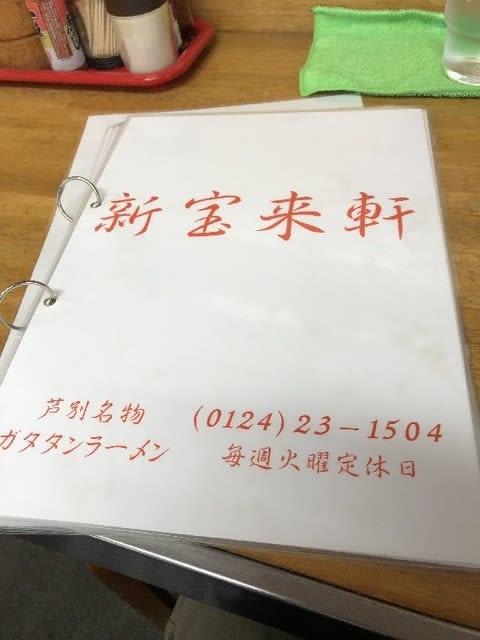 新宝来軒
芦別名物
ガタタンラーメン
(0124)23-1504
毎週火曜定休日